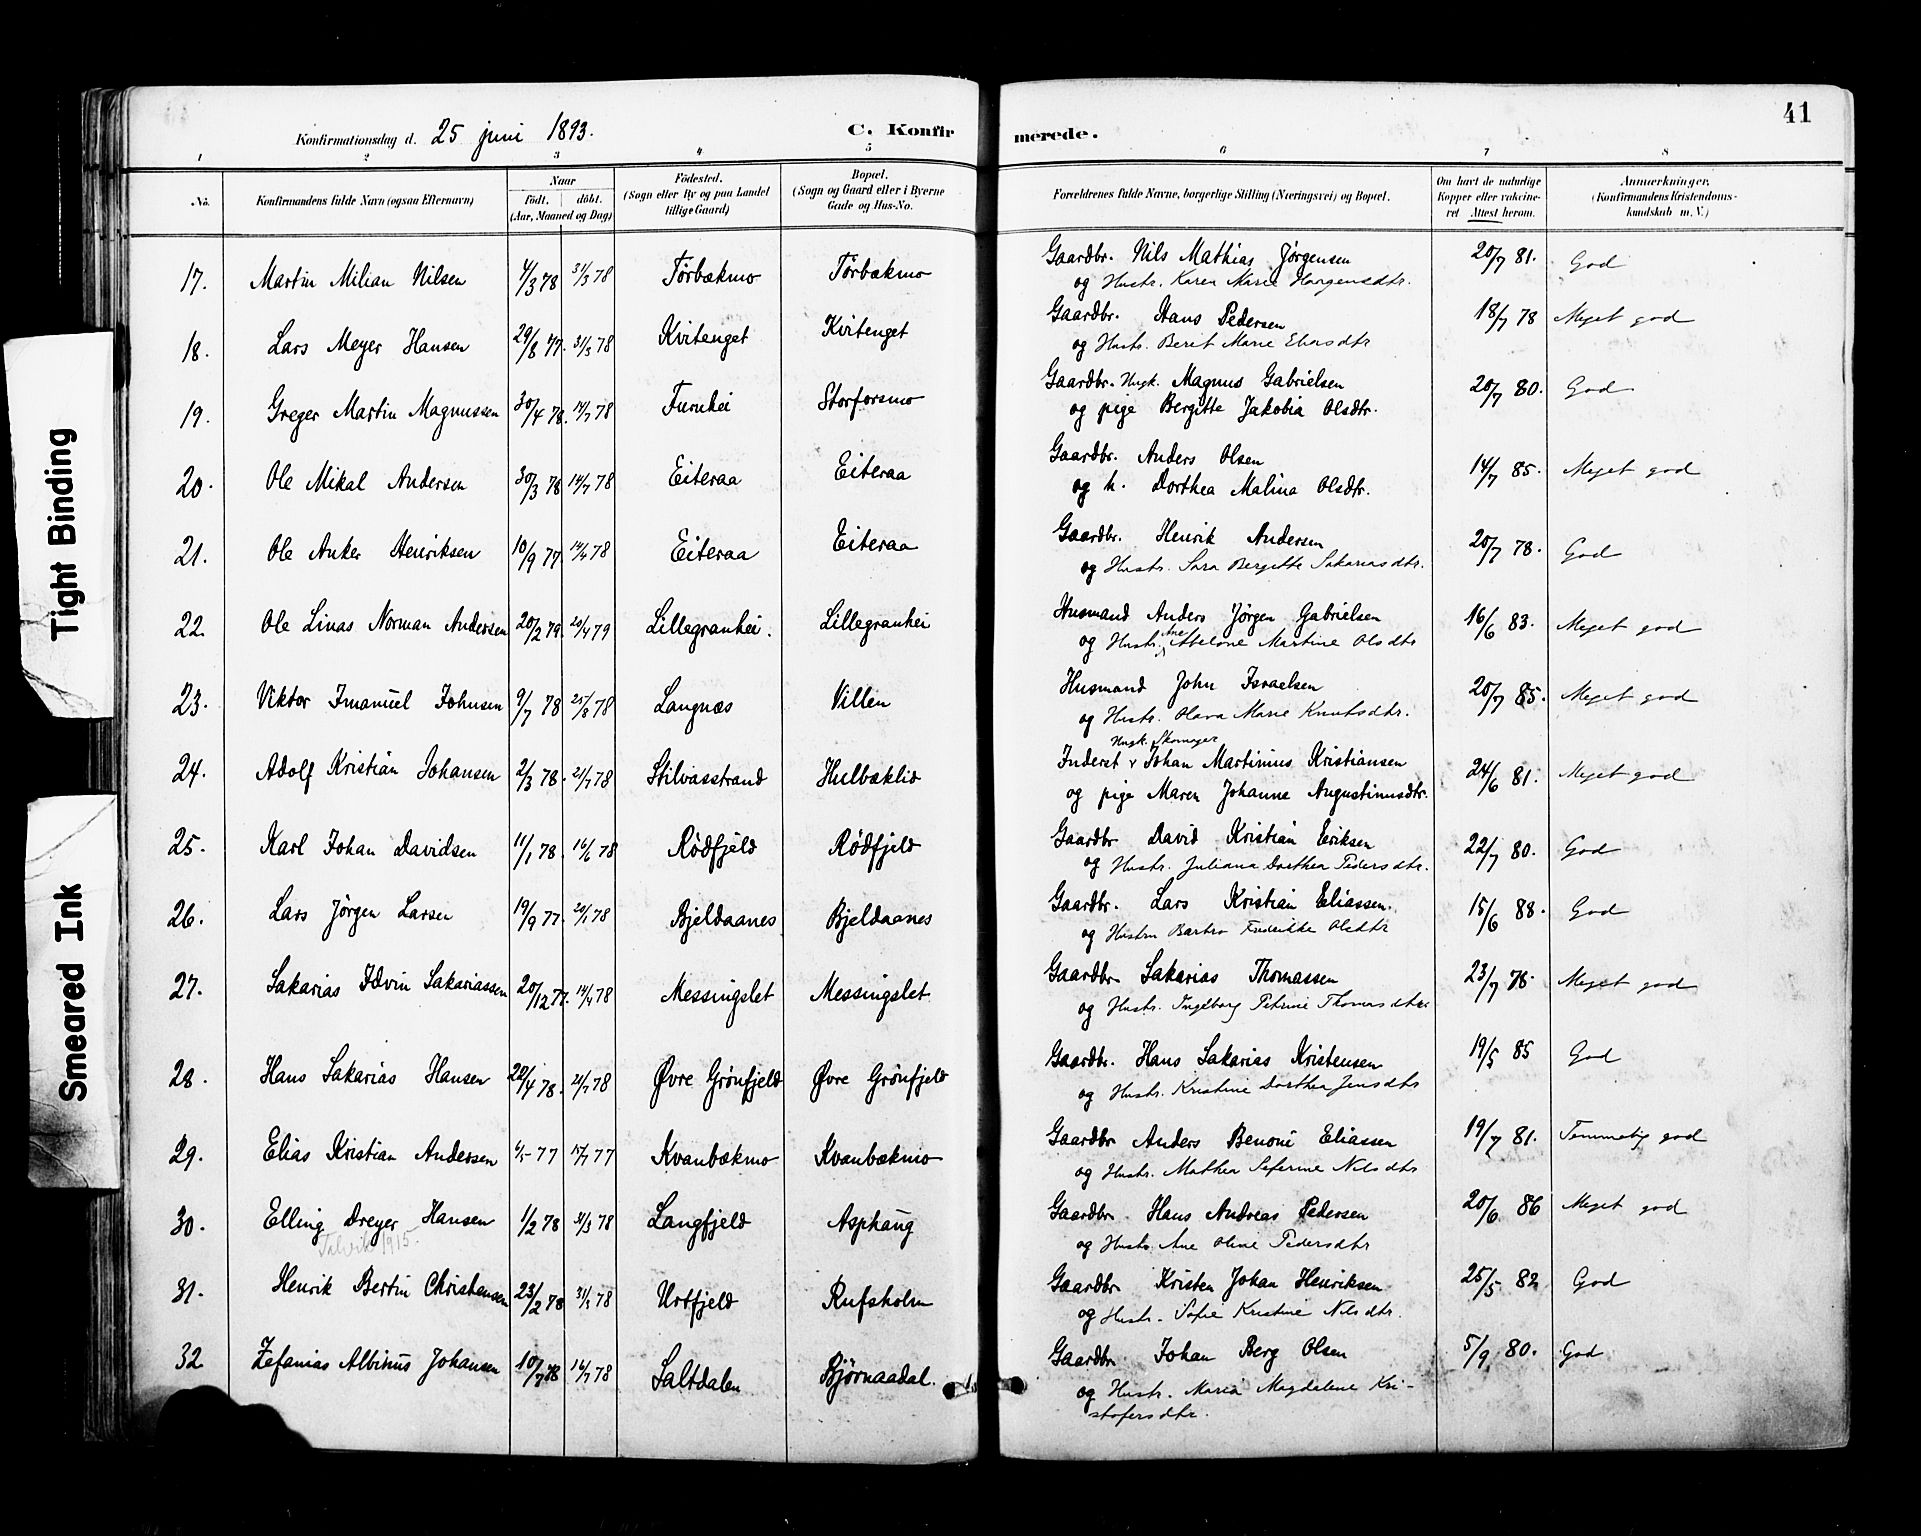 41
Konfirmationsdag d. 25 juni 1893. C. Konfirmerede.
1 2 3 4 5 6 7 8
No. Konfirmandens fulde Navn (ogsaa Efternavn) Naar Født. døbt. (Aar, Maaned og Dag) Fødested. (Sogn eller By og paa Landet tillige Gaard) Bopæl. (Sogn og Gaard eller i Byerne Gade og Hus-No. Forældrenes fulde Navne, borgerlige Stilling (Næringsvei) og Bopæl. Om havt de naturlige Kopper eller vakcineret Attest herom. Anmærkninger. (Konfirmandens Kristendomskundskab m. V.)
17. Martin Milian Nilsen 4/3 78 31/3 78 Tørbækmo Tørbækmo Gaardbr. Nils Mathias Jørgensen 20/7 81. God
og Hustr. Karen Marie Hansgensdtr.
18. Lars Meyer Hansen 29/8 77. 31/3 78 Kvitenget Kvitenget Gaardbr. Hans Pedersen 18/7 78 Meget god
og Hustr. Beret Marie Eliasdtr
19. Greger Martin Magnussen 30/4 78. 14/7 78 Furuhei Storforsmo Gaardbr. Ungk. Magnus Gabrielsen 20/7 80. God
og pige Bergitte Jakobia Olsdtr.
20. Ole Mikal Andersen 30/3 78 14/7 78 Eiteraa Eiteraa Gaardbr. Anders Olsen 14/7 85. Meget god
og h. Dorthea Malina Olsdtr.
21. Ole Anker Henriksen 10/9 77. 14/4 78 Eiteraa Eiteraa Gaardbr. Henrik Andersen 20/7 78. God
og Hustr. Sara Bergitte Sakariasdtr.
22. Ole Linas Norman Andersen 20/2 79. 20/4 79 Lillegranhei. Lillegranhei Husmand Anders Jørgen Gabrielsen 16/6 83. Meget god
og Hustr. Ane Abelone Martine Olsdtr
23. Viktor Imanuel Johnsen 9/7 78 25/8 78 Langnæs Villen Husmand John Israelsen 20/7 85. Meget god
og Hustr. Olava Marie Knutsdtr.
Ungk. Skomager
24. Adolf Kristian Johansen 2/3 78. 21/7 78 Stilvasstrand Hulbæklid Inderst Johan Martinius Kristiansen 24/6 81. Meget god
og pige Maren Johanne Augustinusdtr.
25. Karl Johan Davidsen 11/1 78. 16/6 78 Rødfjeld Rødfjeld Gaardbr David Kristian Eriksen 22/7 80. God
og Hustr. Juliana Dorthea Pedersdtr.
26. Lars Jørgen Larsen 19/9 77. 20/1 78 Bjeldaanes Bjeldaanes Gaardbr. Lars Kristian Eliassen. 15/6 88. God
og Hustru Barbro Fredrikke Olsdtr
27. Sakarias Edvin Sakariassen 20/12 77. 14/4 78 Messingslet Messingslet Gaardbr Sakarias Thomassen 23/7 78. Meget god
og Hustr. Ingeborg Petrine Thomasdtr
28. Hans Sakarias Hansen 20/4 78. 21/7 78 Øvre Grønfjeld Øvre Grønfjeld Gaardbr. Hans Sakarias Kristensen 19/5 85 God
og Hustr. Kristine Dorthea Jensdtr
29. Elias Kristian Andersen 77 15/7 77 Kvanbækmo Kvanbækmo Gaardbr Anders Benoni Eliassen 19/7 81. Temmelig god
og Hustr. Mathea Seferine Nilsdtr
30. Elling Dreyer Hansen 1/2 78 31/3 78 Langfjeld Asphaug Gaardbr. Hans Andreas Pedersen 20/6 86 Meget god
Talvik 1915.
og Hustr. Ane Oline Pedersdtr
31. Henrik Bertin Christensen 23/2 78 31/3 78 Urtfjeld Rufsholm Gaardbr Kristen Johan Henriksen 25/5. 82 God
og Hustr. Sofie Kristine Nilsdtr.
32 Zefanias Albinus Johansen 10/7 78 16/7 78 Saltdalen Bjørnaadal. Gaardbr Johan Berg Olsen 5/9 80. God
og Hustr. Maria Magdalene Kri-
stofersdtr.
Tight Binding
Smeared Ink